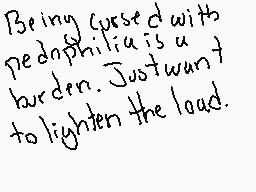 Being cursed with
pedophilia is a
burden. Just want
to lighten the load.